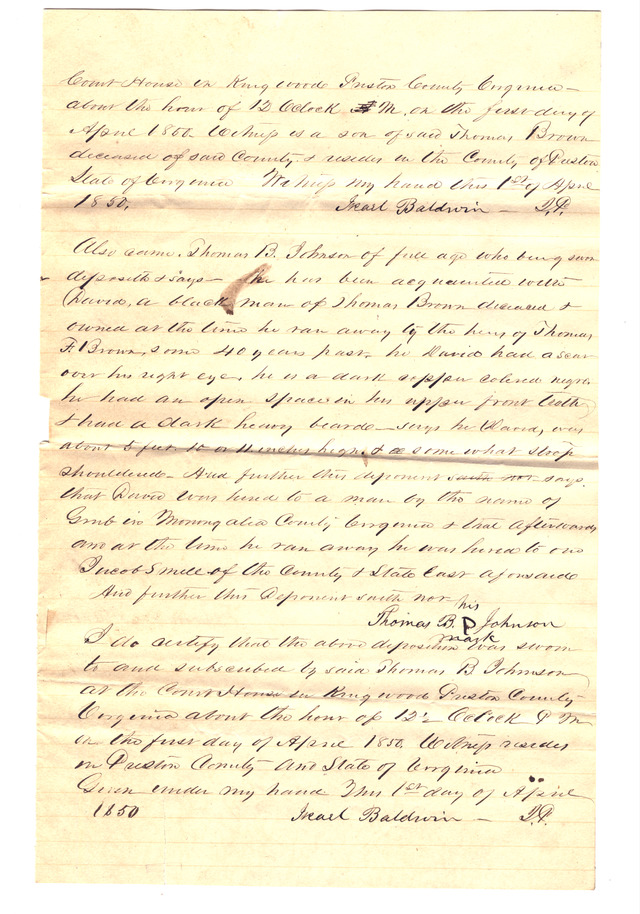 Court House in Kingwood Preston County Virginia –
about the hour of 12 Oclock M, on the first day of
April 1850. Witness is a son of said Thomas Brown
deceased of said County, & resides in the County of Preston
State of Virginia Witness my hand this 1st of April
1850. Israel Baldwin – J.P.
Also came, Thomas B. Johnson of full age who being sworn
deposeth & says – he has been acquainted with
David, a black man of Thomas Brown deceased &
owned at the time he ran away by the heirs of Thomas
F. Brown, some 40 years past – he David had a scar
over his right eye, he is a dark copper colored negro
he had an open space in his upper front teeth
& had a dark heavy beard – says he David, was
about 5 feet 10 or 11 inches high, & some what stoop
shouldered – And further this deponent saith not says.
that David was hired to a man by the name of
Grub in Monongalia County Virginia & that afterwards
and at the time he ran away he was hired to one
Jacob Smell of the County & State East aforesaid
And further this Deponent saith not
his
Thomas B. P Johnson
mark
I do certify that the above deposition was sworn
to and subscribed by said Thomas B. Johnson
at the Court House in Kingwood Preston County
Virginia about the hour of 12½ Oclock P M
on the first day of April 1850. Witness resides
in Preston County and State of Virginia
Given under my hand This 1st day of April
1850 Israel Baldwin – J.P.